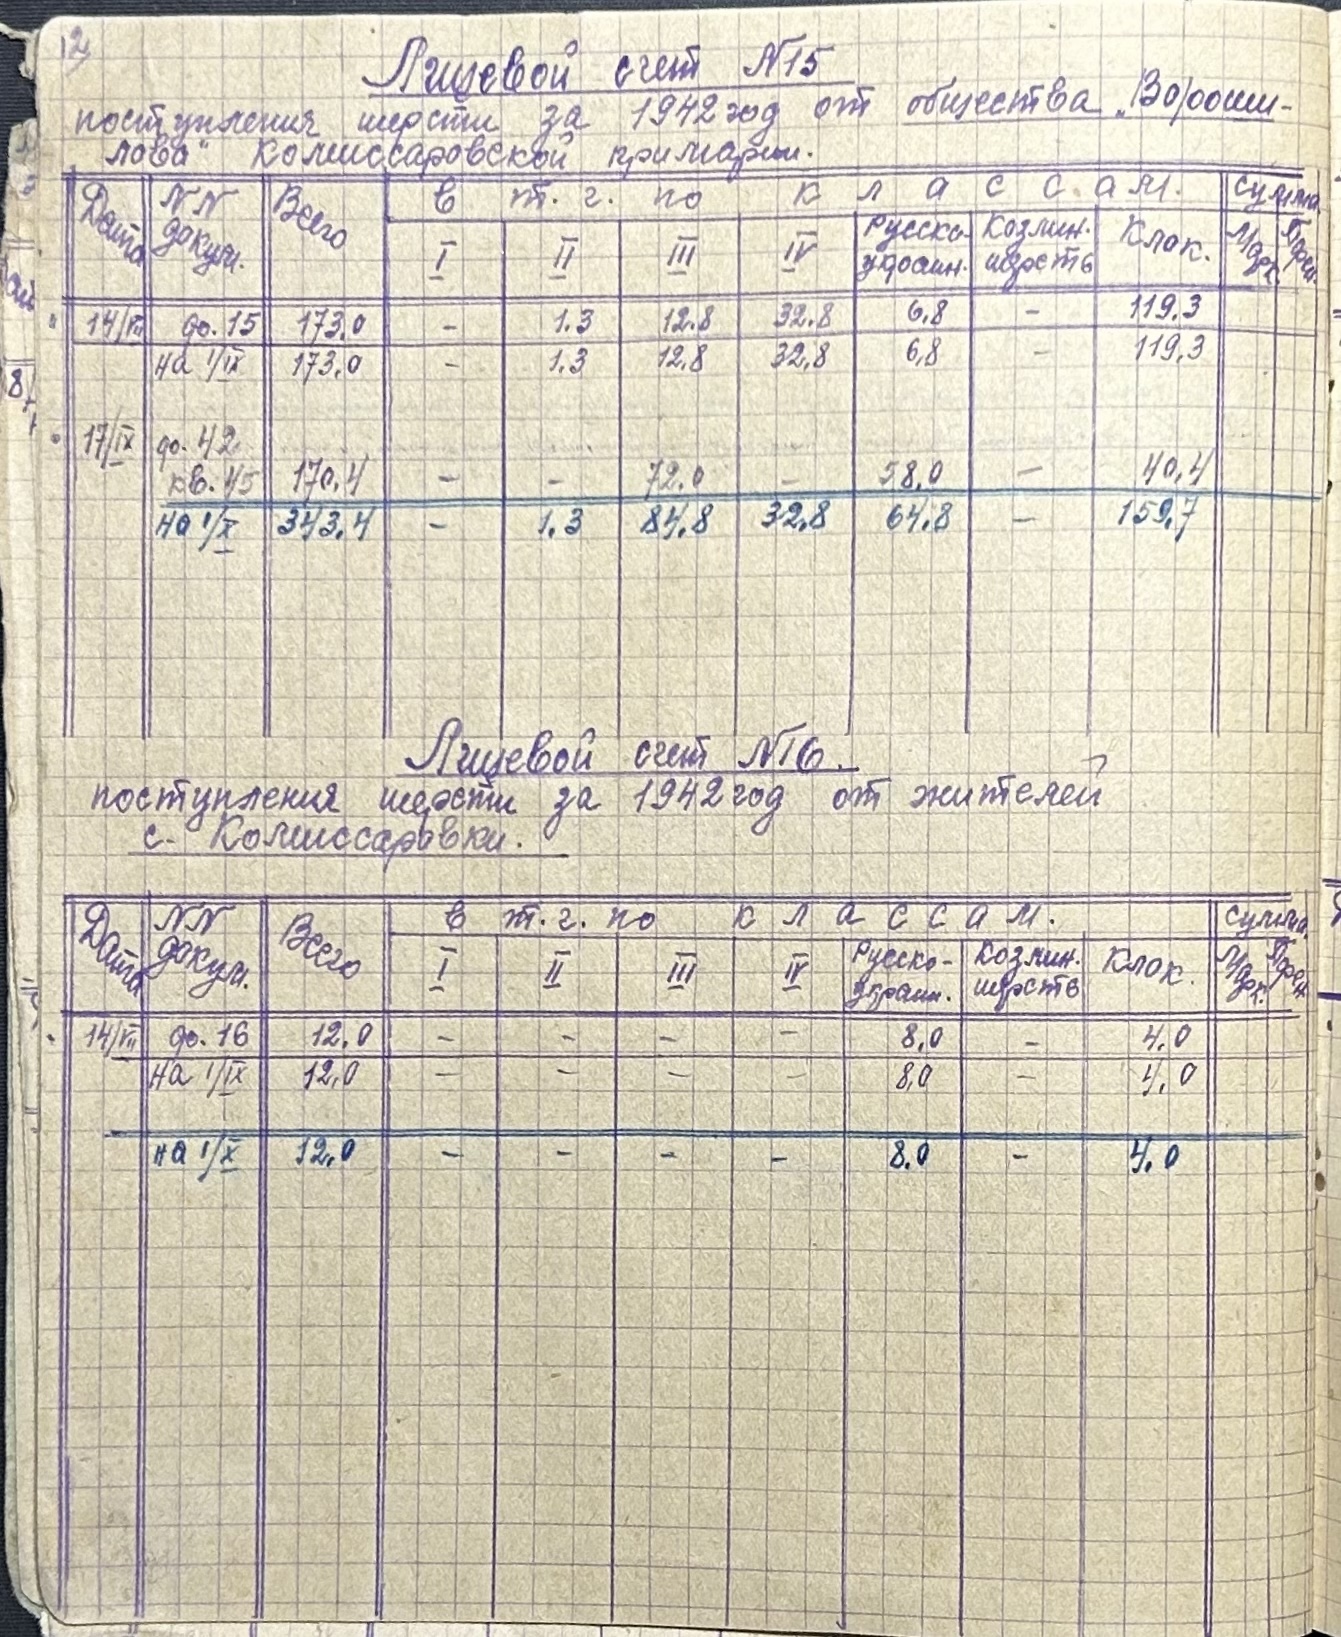 12
Лицевой счет N15
поступления шерсти за 1942 год от общества „Вороши-
лова" Комиссаровской примарии.
Дата NN докум. Всего в т. г. по классам. сумма
I II III IV Русско-украин. Козлин. шерсть Клок. Марк. Пфен.
14/VII до. 15 173,0 - 1.3 12.8 32.8 6,8 - 119,3
на 1/IX 173,0 - 1.3 12,8 32,8 6,8 - 119,3
17/IX до. 42
кв. 45 170,4 - - 72.0 - 58,0 - 40,4
на 1/X 343,4 - 1.3 84,8 32,8 64,8 - 159,7
Лицевой счет N16.
поступления шерсти за 1942 год от жителей
с. Комиссаровки.
Дата NN докум. Всего в т. г. по классам. сумма
I II III IV Русско-украин. Козлин. шерсть Клок. Марк. Пфен.
14/VII до. 16 12,0 - - - - 8,0 - 4,0
на 1/IX 12,0 - - - - 8,0 - 4,0
на 1/X 12,0 - - - - 8,0 - 4,0